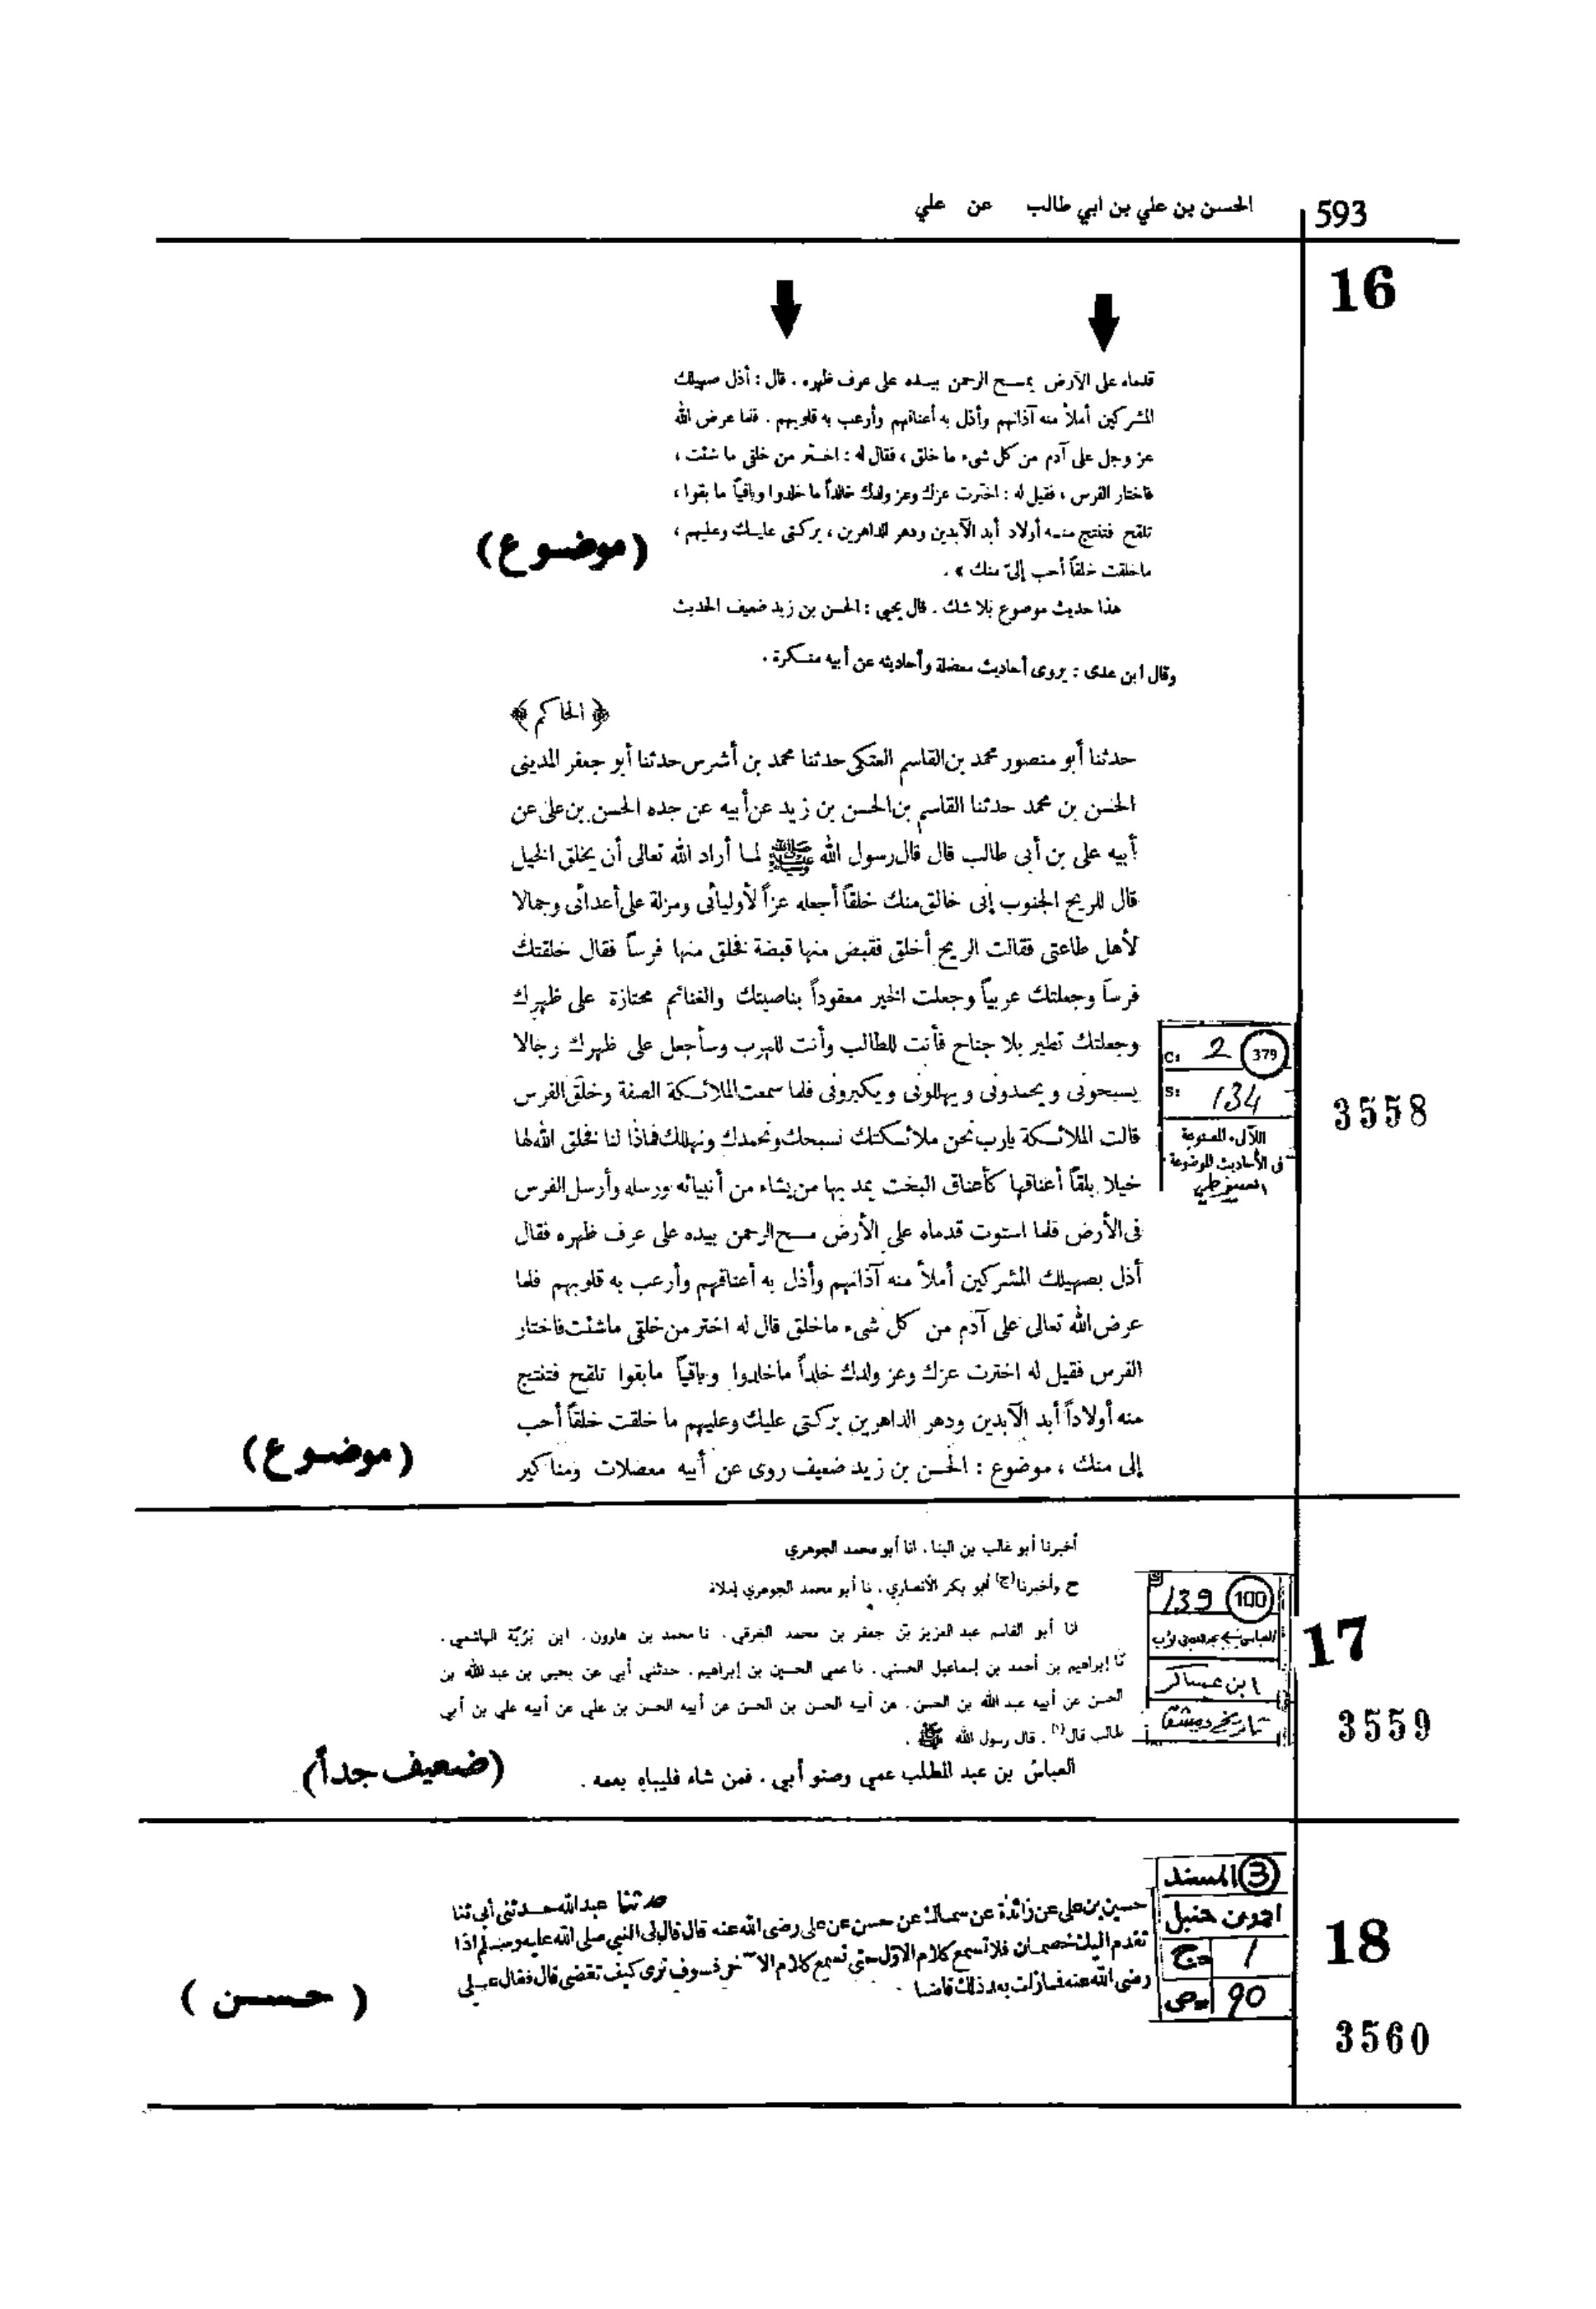 593
الحسن بن علي بن ابي طالب عن علي
16
قدماه على الأرض يمسح الرحمن بيده على عرف ظهره . قال : أذل صهيلك
المشركين أملأ منه آذانهم وأذل به أعناقهم وأرعب به قلوبهم . فلما عرض الله
عز وجل على آدم من كل شىء ما خلق ، فقال له : اختر من خلقى ما شئت ،
فاختار الفرس ، فقيل له : اخترت عزك وعز ولدك خالداً ما خلدوا وباقياً ما بقوا ،
تلقح فتنتج منه أولاد أبد الآبدين ودهر الداهرين ، بركتى عليك وعليهم ،
ماخلقت خلقاً أحب إلىّ منك » .
(موضوع)
هذا حديث موضوع بلا شك . قال يحيى : الحسن بن زيد ضعيف الحديث
وقال ابن عدى : يروى أحاديث معضلة وأحاديثه عن أبيه منكرة .
﴿الحاكم﴾
حدثنا أبو منصور محمد بن القاسم العتكى حدثنا محمد بن أشرس حدثنا أبو جعفر المدينى
الحسن بن محمد حدثنا القاسم بن الحسن بن زيد عن أبيه عن جده الحسن بن على عن
أبيه على بن أبى طالب قال قال رسول الله ﷺ لما أراد الله تعالى أن يخلق الخيل
قال للريح الجنوب إنى خالق منك خلقاً أجعله عزاً لأوليائى ومزلة على أعدائى وجمالا
لأهل طاعتى فقالت الريح أخلق فقبض منها قبضة فخلق منها فرساً فقال خلقتك
فرساً وجعلتك عربياً وجعلت الخير معقوداً بناصيتك والغنائم محتازة على ظهرك
وجعلتك تطير بلا جناح فأنت للطالب وأنت للهرب وسأجعل على ظهرك رجالا
يسبحونى ويحمدونى ويهللونى ويكبرونى فلما سمعت الملائكة الصفة وخلق الفرس
قالت الملائكة يارب نحن ملائكتك نسبحك ونحمدك ونهللك فماذا لنا فخلق الله لها
خيلا بلقاً أعناقها كأعناق البخت يمد بها من يشاء من أنبيائه ورسله وأرسل الفرس
فى الأرض فلما استوت قدماه على الأرض مسح الرحمن بيده على عرف ظهره فقال
أذل بصهيلك المشركين أملأ منه آذانهم وأذل به أعناقهم وأرعب به قلوبهم فلما
عرض الله تعالى على آدم من كل شىء ماخلق قال له اختر من خلقى ماشئت فاختار
الفرس فقيل له اخترت عزك وعز ولدك خلداً ماخلدوا وباقياً مابقوا تلقح فتنتج
منه أولاداً أبد الآبدين ودهر الداهرين بركتى عليك وعليهم ما خلقت خلقاً أحب
إلى منك ، موضوع : الحسن بن زيد ضعيف روى عن أبيه معضلات ومناكير
(موضوع)
379 C: 2
S: 134
اللآلىء المصنوعة
فى الأحاديث الموضوعة
السيوطي
3558
أخبرنا أبو غالب بن البنا . انا أبو محمد الجوهري
ح وأخبرنا(ج) أبو بكر الأنصاري . نا أبو محمد الجوهري إملاء
انا أبو القاسم عبد العزيز بن جعفر بن محمد الخرقي . نا محمد بن هارون . ابن بُرَيّة الهاشمي .
نا إبراهيم بن أحمد بن إسماعيل الحسني . نا عمي الحسين بن إبراهيم . حدثني أبي عن يحيى بن عبد الله بن
الحسن عن أبيه عبد الله بن الحسن . عن أبيه الحسن بن الحسن عن أبيه الحسن بن علي عن أبيه علي بن أبي
طالب قال(١) . قال رسول الله ﷺ .
العباس بن عبد المطلب عمي وصنو أبي . فمن شاء فليباه بعمه .
(ضعيف جداً)
100 139
ابن عساكر
تاريخ دمشق
17
3559
حدثنا عبد الله حدثنى أبى ثنا
حسين بن على عن زائدة عن سماك عن حسن عن على رضى الله عنه قال قال لى النبى صلى الله عليه وسلم اذا
تقدم اليك خصمان فلا تسمع كلام الاول حتى تسمع كلام الآخر فسوف ترى كيف تقضى قال فقال على
رضى الله عنه فمازلت بعد ذلك قاضيا
(حسن)
3 المسند
احمد بن حنبل
ج 1
ص 90
18
3560